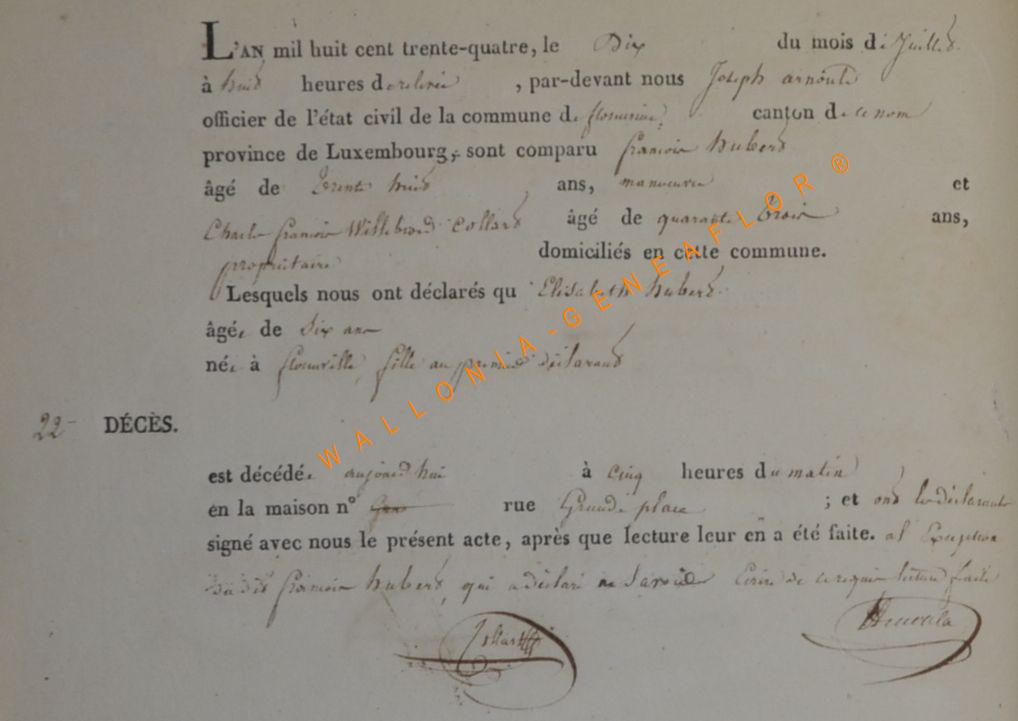 L'AN mil huit cent trente-quatre, le Dix du mois di Juillet
à huit heures de relevée, par-devant nous Joseph arnould
officier de l'état civil de la commune de florenville, canton de ce nom
province de Luxembourg, sont comparu françois hubert
âgé de trente huit ans, manoeuvre et
Charle françois Willebrord Collard âgé de quarante trois ans,
propriétaire domiciliés en cette commune.
Lesquels nous ont déclarés qu Elisabeth hubert
âgée de dix ans
née à florenville, fille au premier déclarant
22 DÉCÈS.
est décédée aujourd hui à cinq heures du matin
en la maison n° rue Grande place ; et ont les déclarants
signé avec nous le présent acte, après que lecture leur en a été faite. al Exception
du dit françois hubert, qui a déclaré ne savoir Ecrire de ce requis lecture faite
Collard
WALLONIA-GENEAFLOR ®